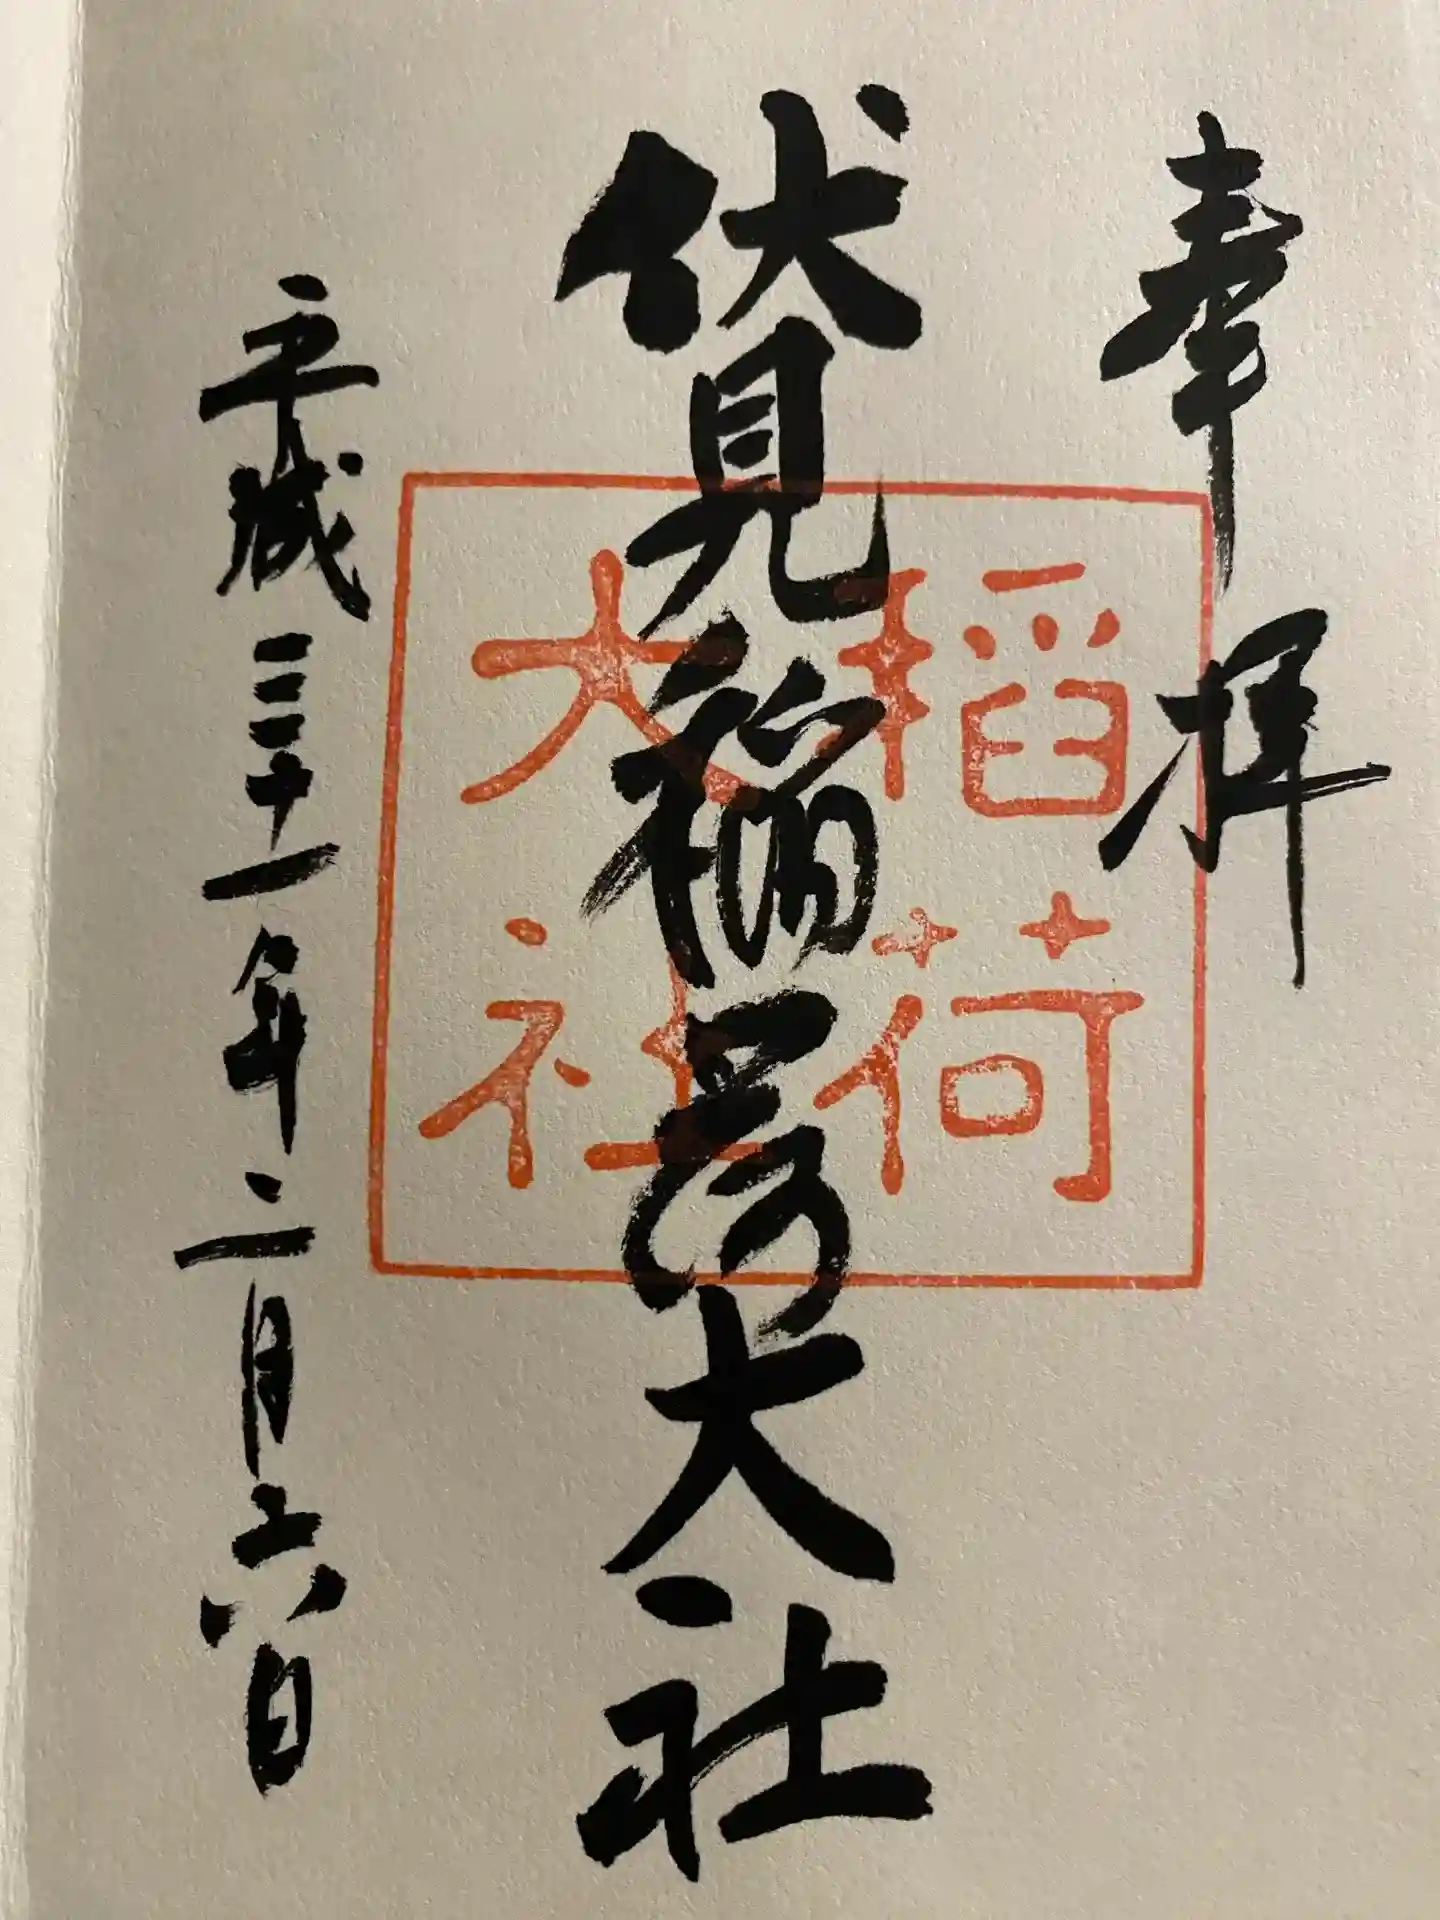 奉拝
伏見稲荷大社
平成三十一年二月六日
稲荷
大社